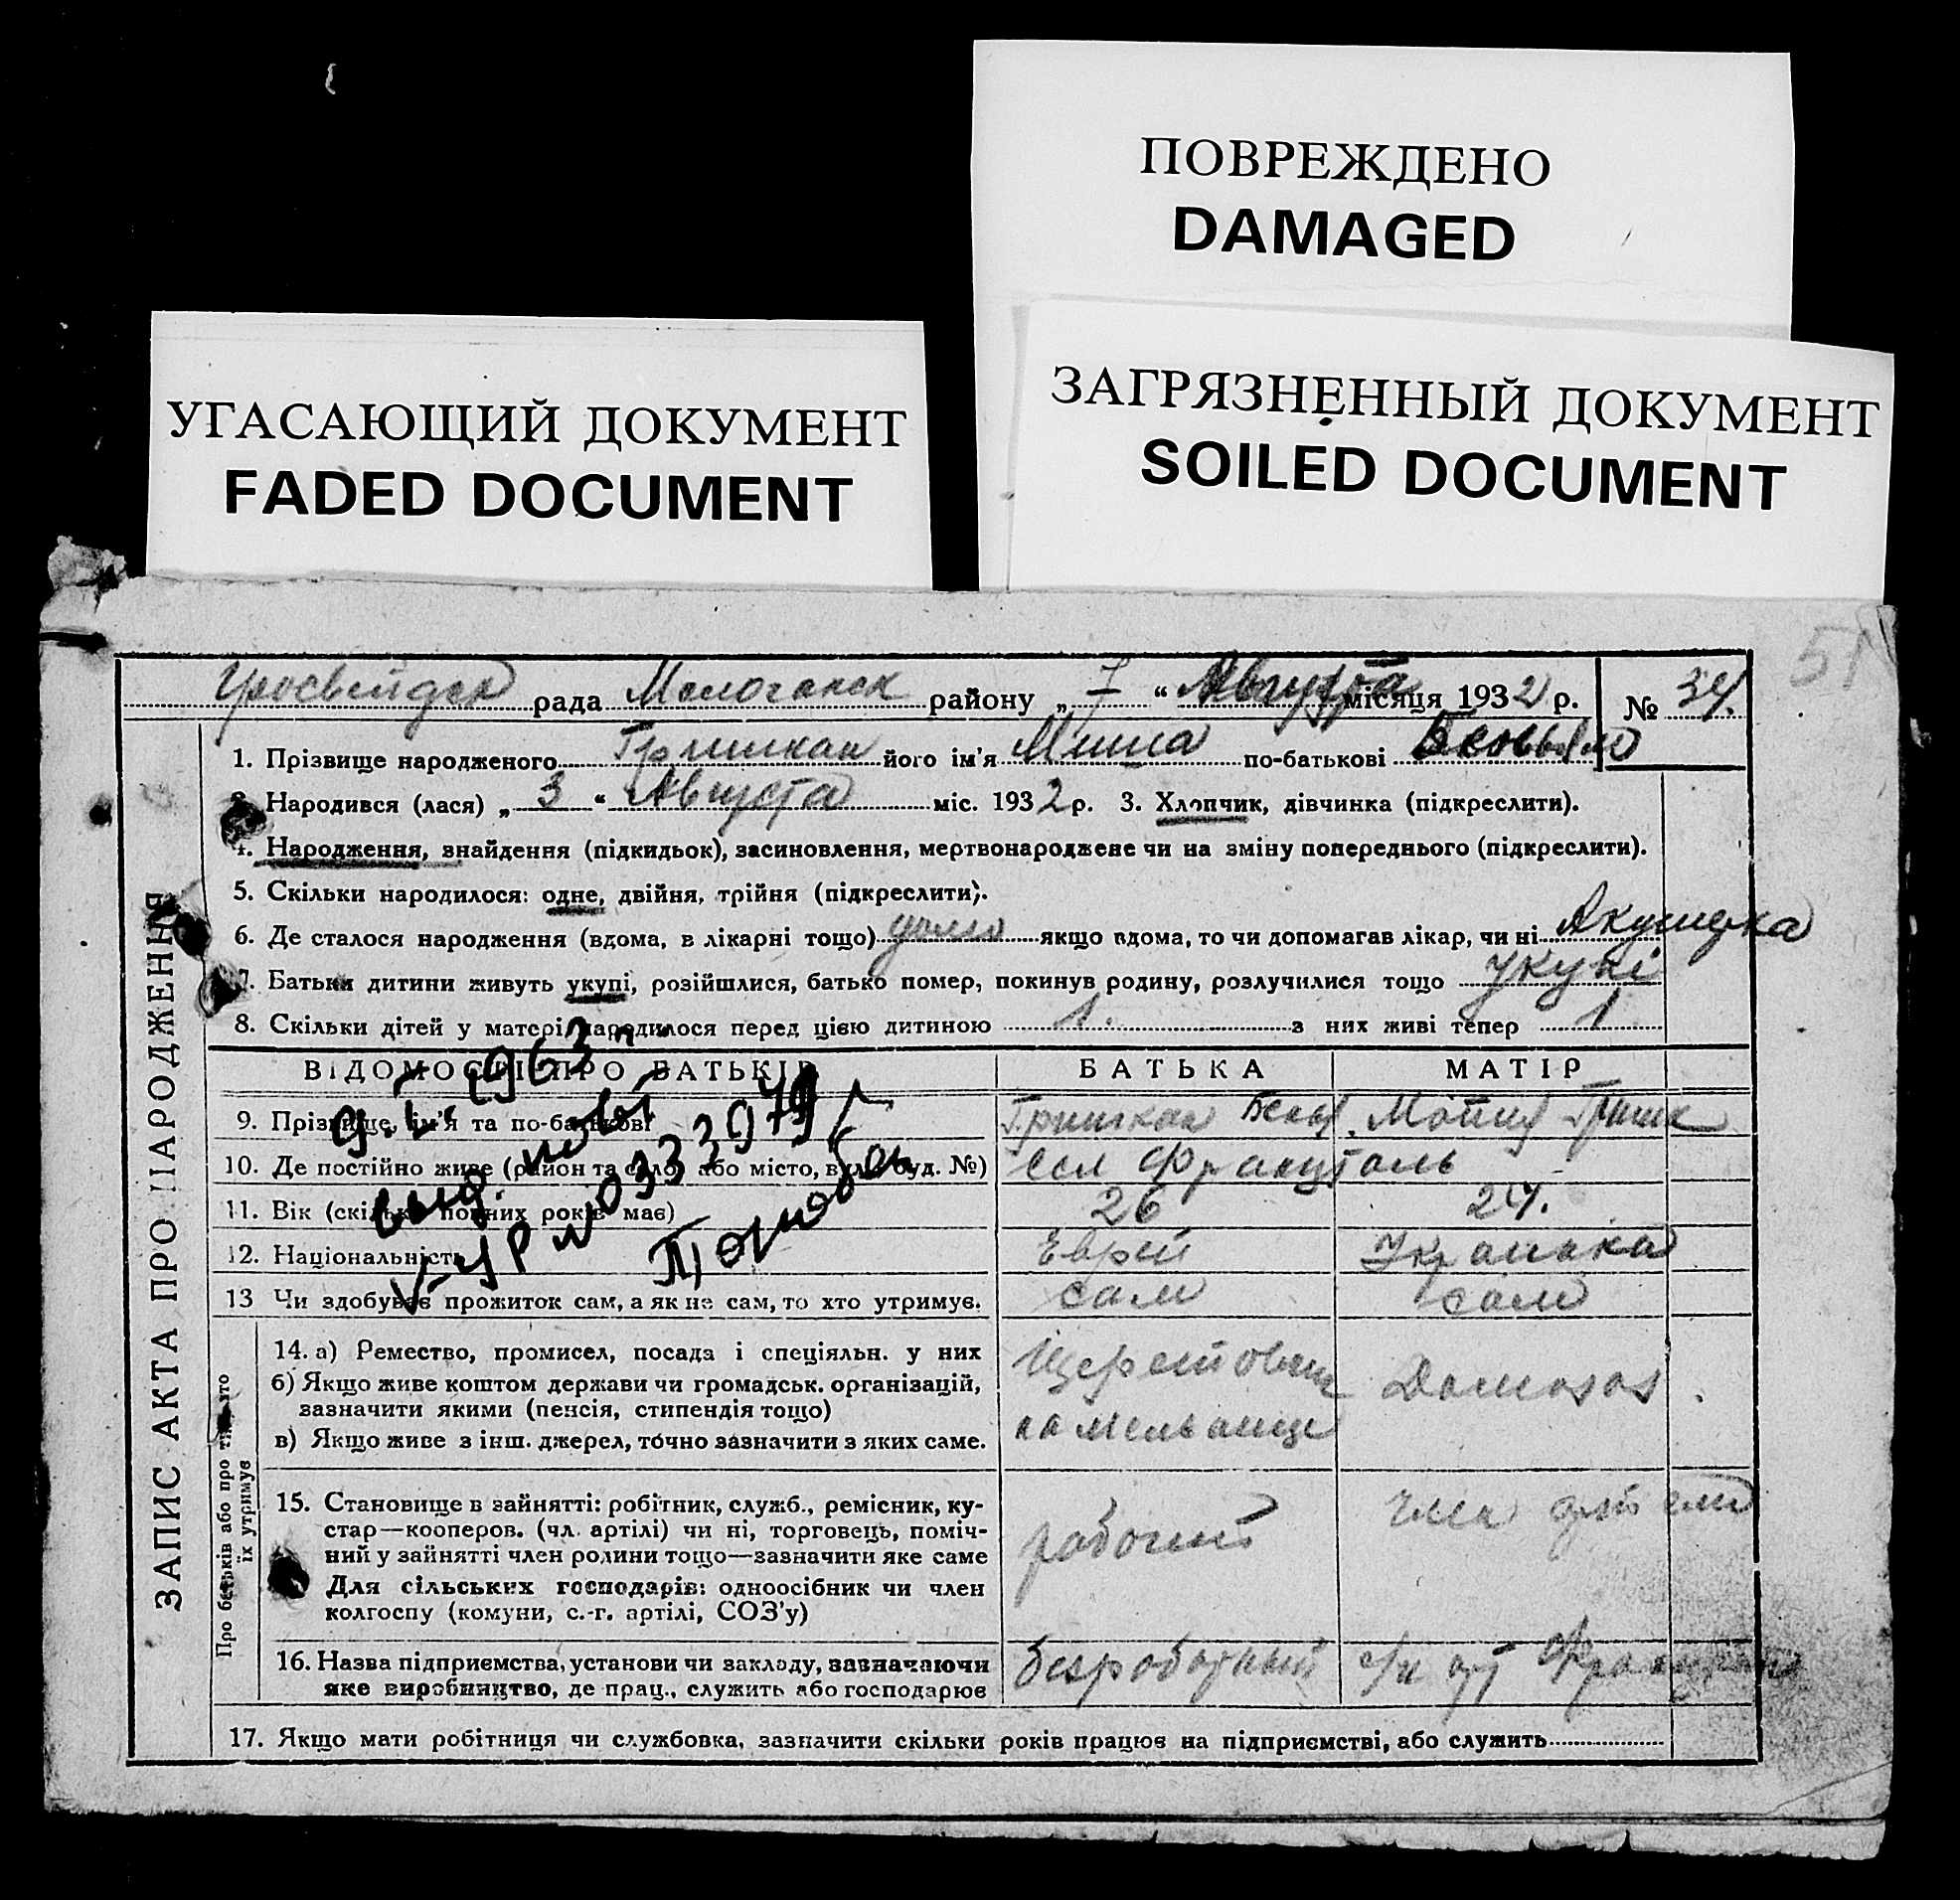 ПОВРЕЖДЕНО
DAMAGED
УГАСАЮЩИЙ ДОКУМЕНТ
FADED DOCUMENT
ЗАГРЯЗНЕННЫЙ ДОКУМЕНТ
SOILED DOCUMENT
51
рада району „ 7 “ Августа місяця 1932 р. № 34.
1. Прізвище народженого Гришкан його ім'я Миша по-батькові
2. Народився (лася) „ 3 “ Августа міс. 1932 р. 3. Хлопчик, дівчинка (підкреслити).
4. Народження, знайдення (підкидьок), засиновлення, мертвонароджене чи на зміну попереднього (підкреслити).
5. Скільки народилося: одне, двійня, трійня (підкреслити).
6. Де сталося народження (вдома, в лікарні тощо) якщо вдома, то чи допомагав лікар, чи ні Акушерка
7. Батьки дитини живуть укупі, розійшлися, батько помер, покинув родину, розлучилися тощо укупі
8. Скільки дітей у матері народилося перед цією дитиною 1. з них живі тепер 1
ЗАПИС АКТА ПРО НАРОДЖЕННЯ
ВІДОМОСТІ ПРО БАТЬКІВ БАТЬКА МАТІР
9. Прізвище, ім'я та по-батькові Гришкан
10. Де постійно живе (район та село, або місто, вул. буд. №)
11. Вік (скільки повних років має) 26 24.
12. Національність Еврей Украинка
13 Чи здобуває прожиток сам, а як не сам, то хто утримує. сам сам
Про батьків або про тих, хто їх утримує
14. а) Ремество, промисел, посада і спеціяльн. у них
б) Якщо живе коштом держави чи громадськ. організацій,
зазначити якими (пенсія, стипендія тощо)
в) Якщо живе з інш. джерел, точно зазначити з яких саме.
Домохоз.
15. Становище в зайнятті: робітник, служб., ремісник, ку-
стар—кооперов. (чл. артілі) чи ні, торговець, поміч-
ний у зайнятті член родини тощо—зазначити яке саме
Для сільських господарів: одноосібник чи член
колгоспу (комуни, с.-г. артілі, СОЗ'у)
рабочий член артели
16. Назва підприємства, установи чи закладу, зазначаючи
яке виробництво, де прац., служить або господарює
17. Якщо мати робітниця чи службовка, зазначити скільки років працює на підприємстві, або служить